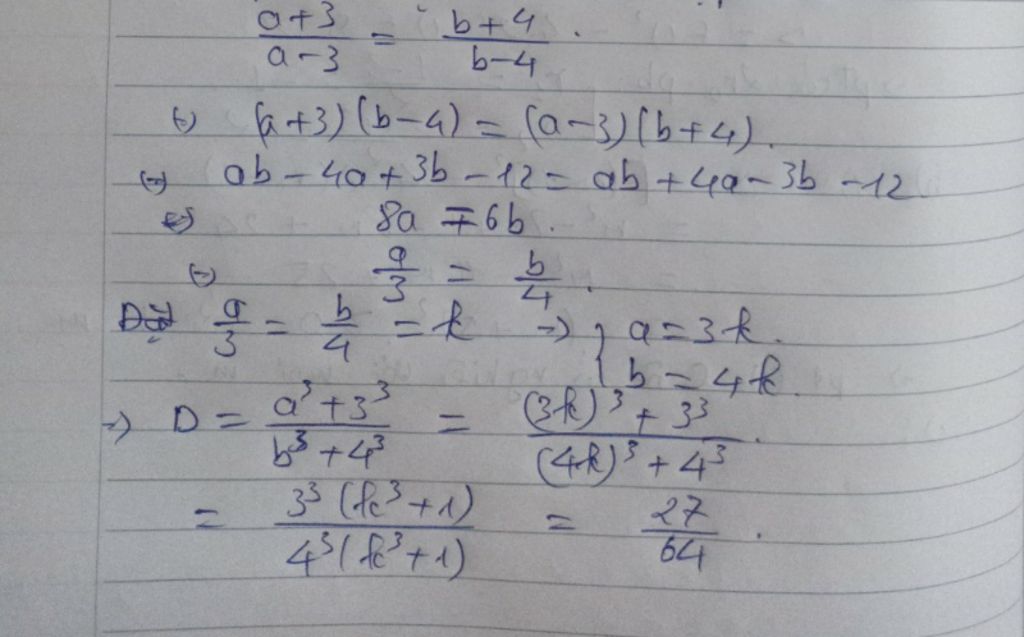 a+3/a-3 = b+4/b-4 .
(=) (a+3)(b-4) = (a-3)(b+4).
(=) ab - 4a + 3b - 12 = ab + 4a - 3b - 12
(=) 8a = 6b .
(=) a/3 = b/4 .
Đặt a/3 = b/4 = k => { a = 3k. b = 4k.
=> D = a³+3³/b³+4³ = (3k)³+3³/(4k)³+4³ .
= 3³(k³+1)/4³(k³+1) = 27/64 .